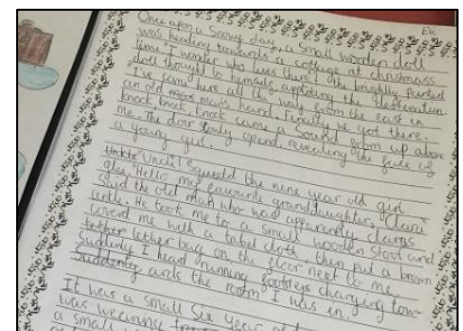 Once upon a snowy day, a small wooden doll
was heading towards a cottage at christmass
time. I wonder who lives there? the brightly painted
doll thought to himself, the
I've came here all the way from the east in
an old man's hand. Finally we got there.
knock, knock, knock came a sound from up above
me. The door opend, revealing the face of
a young girl.
Uncle! Squeeld the nine year old girl
Hello my favourite granddaughter, clara
Said the old man who was apparently claras
uncle. He took me to a small wooden stool and
coverd me with a tabel cloth, then put a brown
lether bag on the floor next to me.
Suddenly I heard running footsteps charging tow-
ards the room I was in.
It was a small six year
was wearing
a small